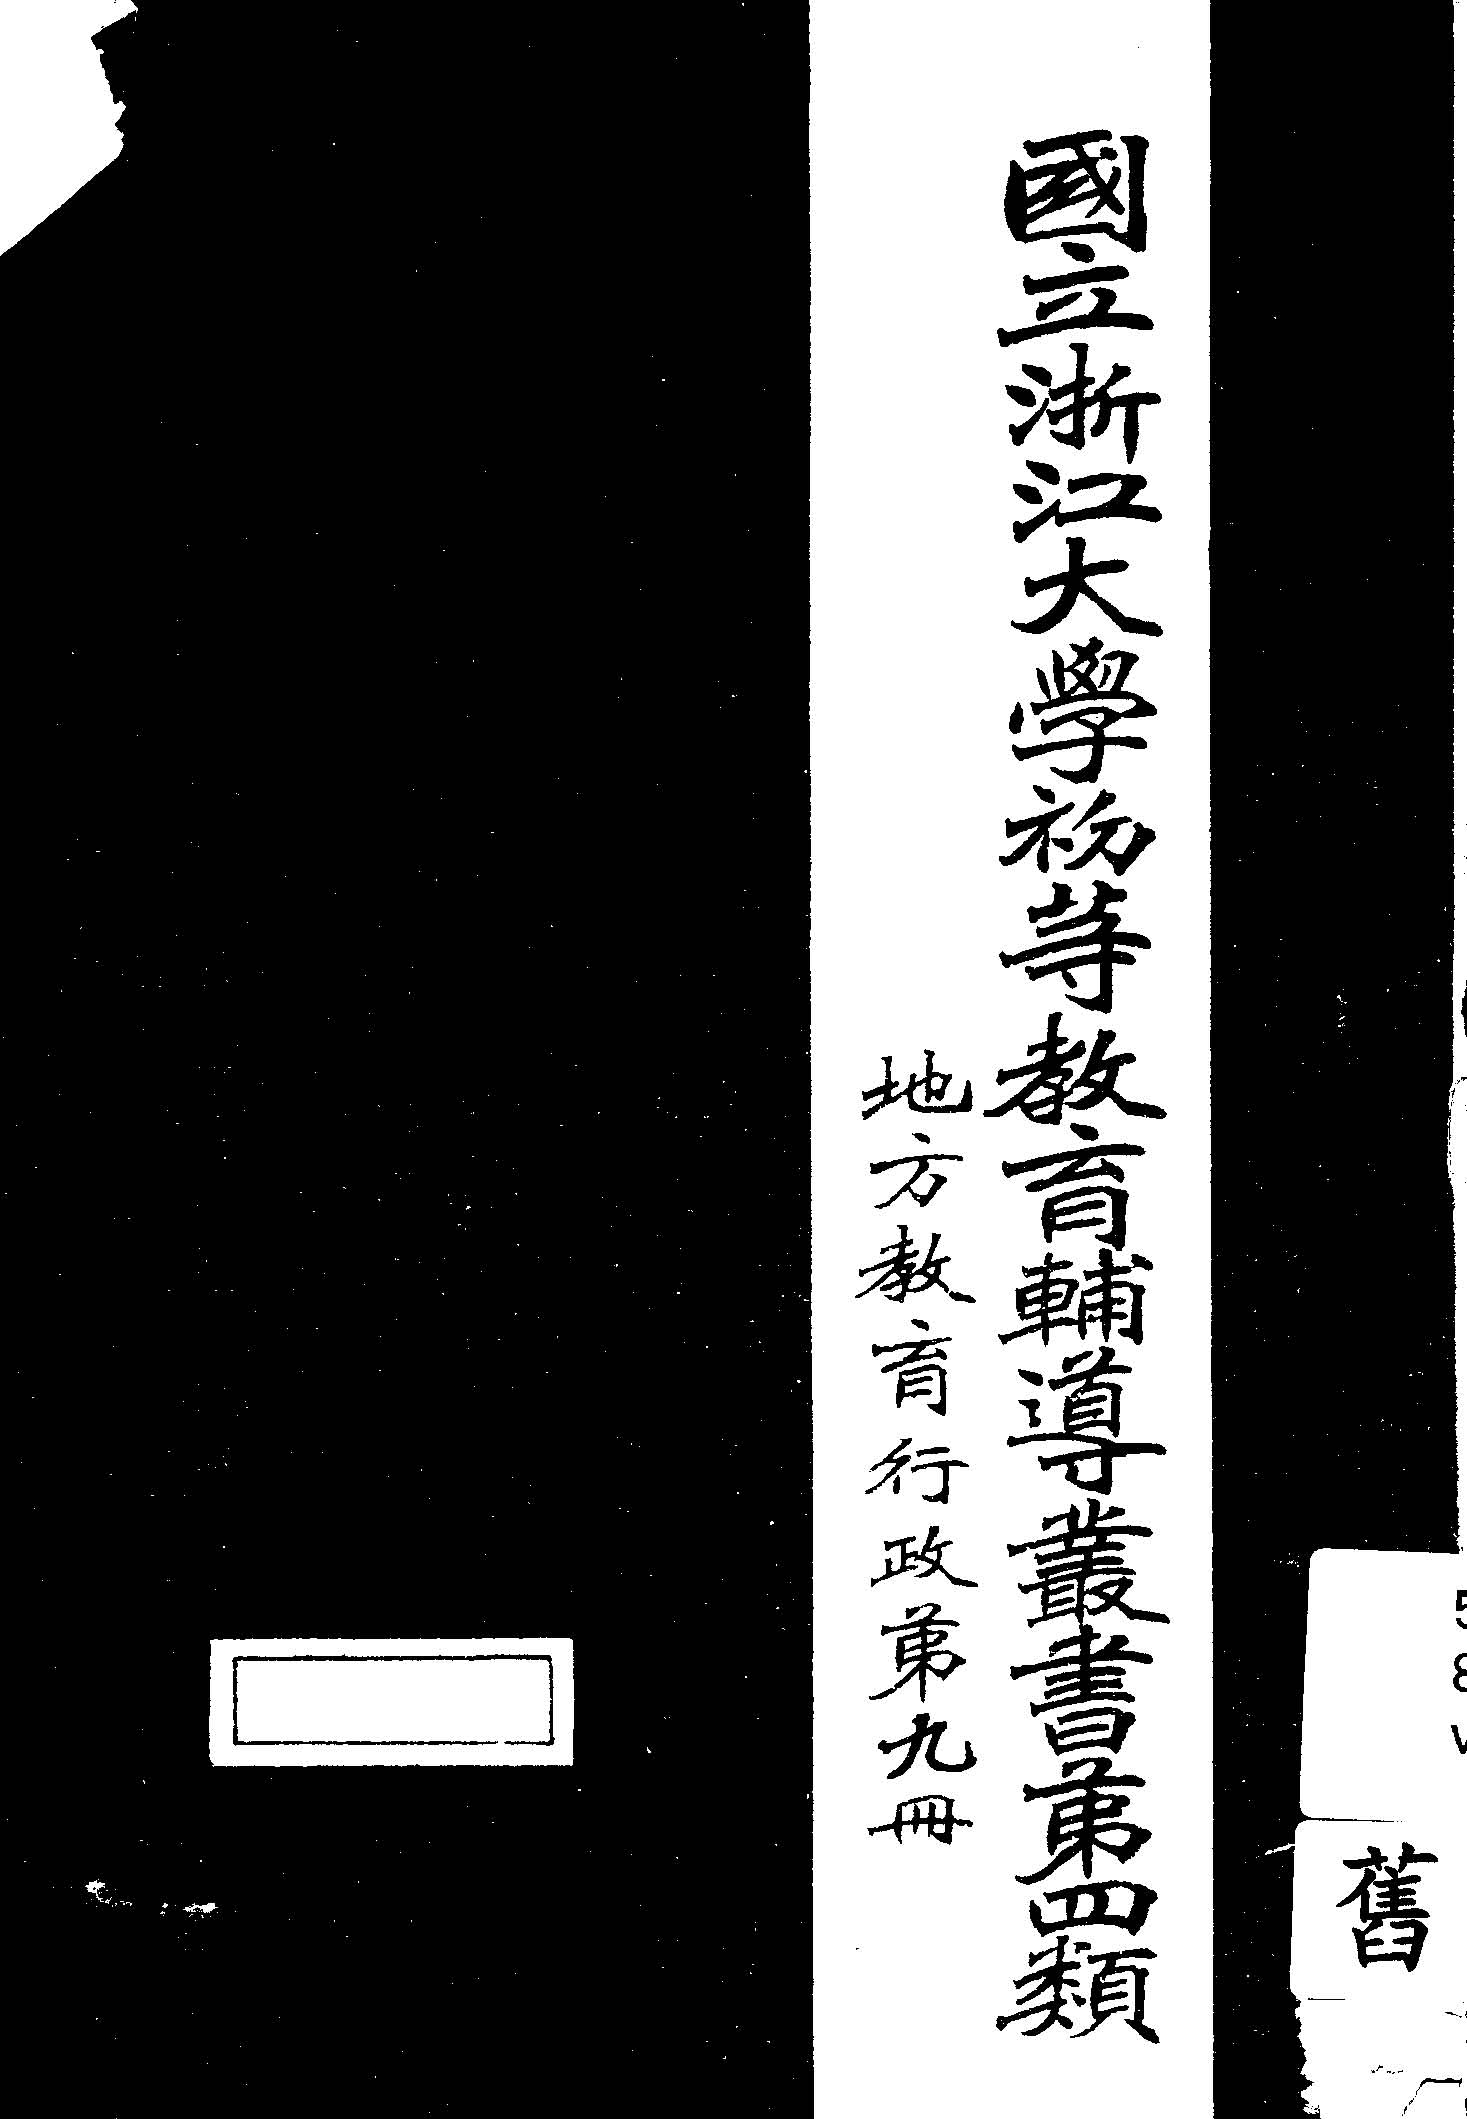 國立浙江大學初等教育輔導叢書第四類
地方教育行政第九冊
舊